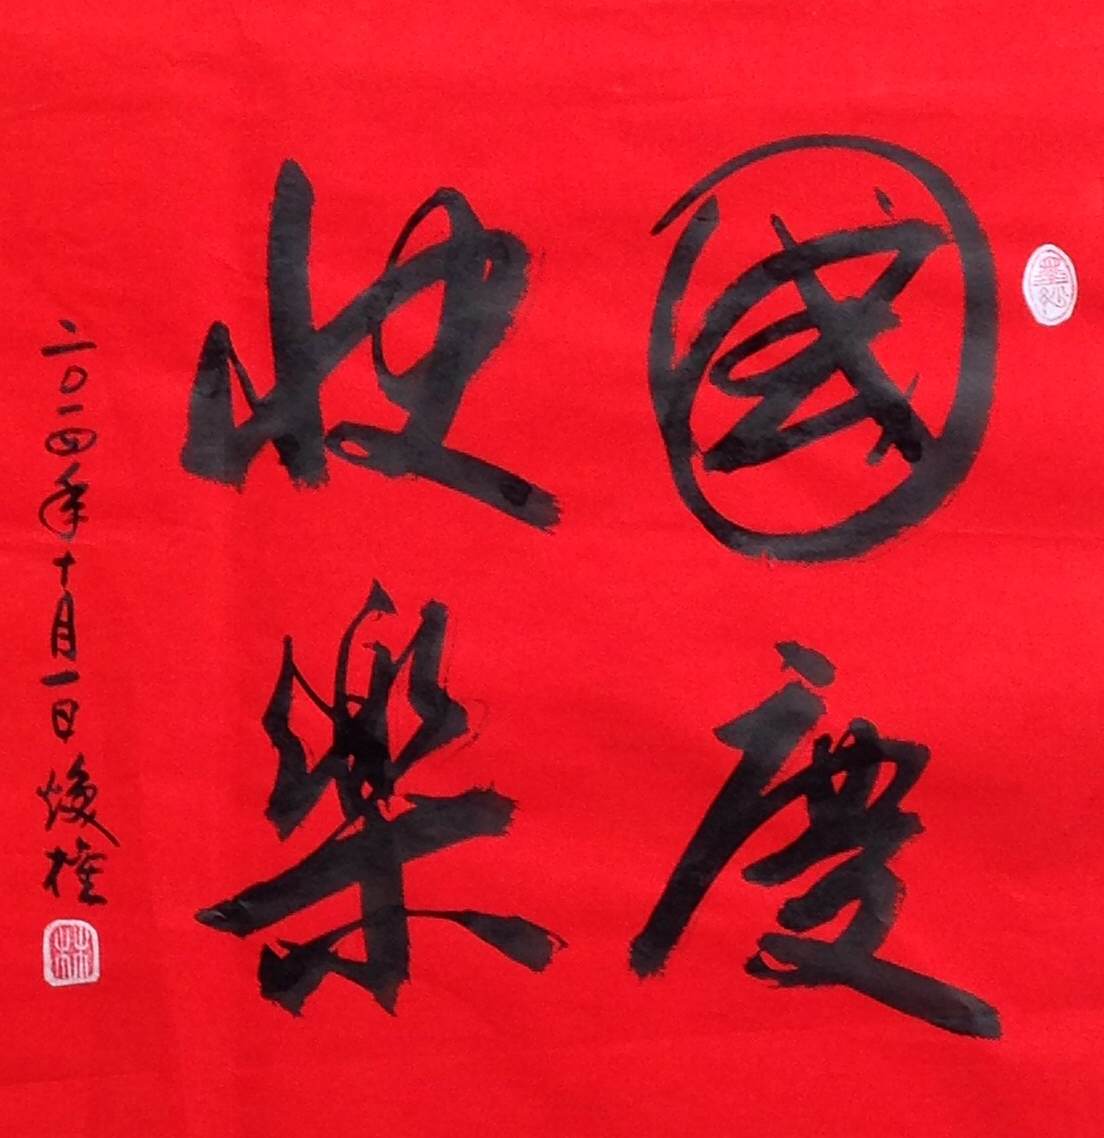 國慶
快樂
二〇一四年十月一日煥權
林